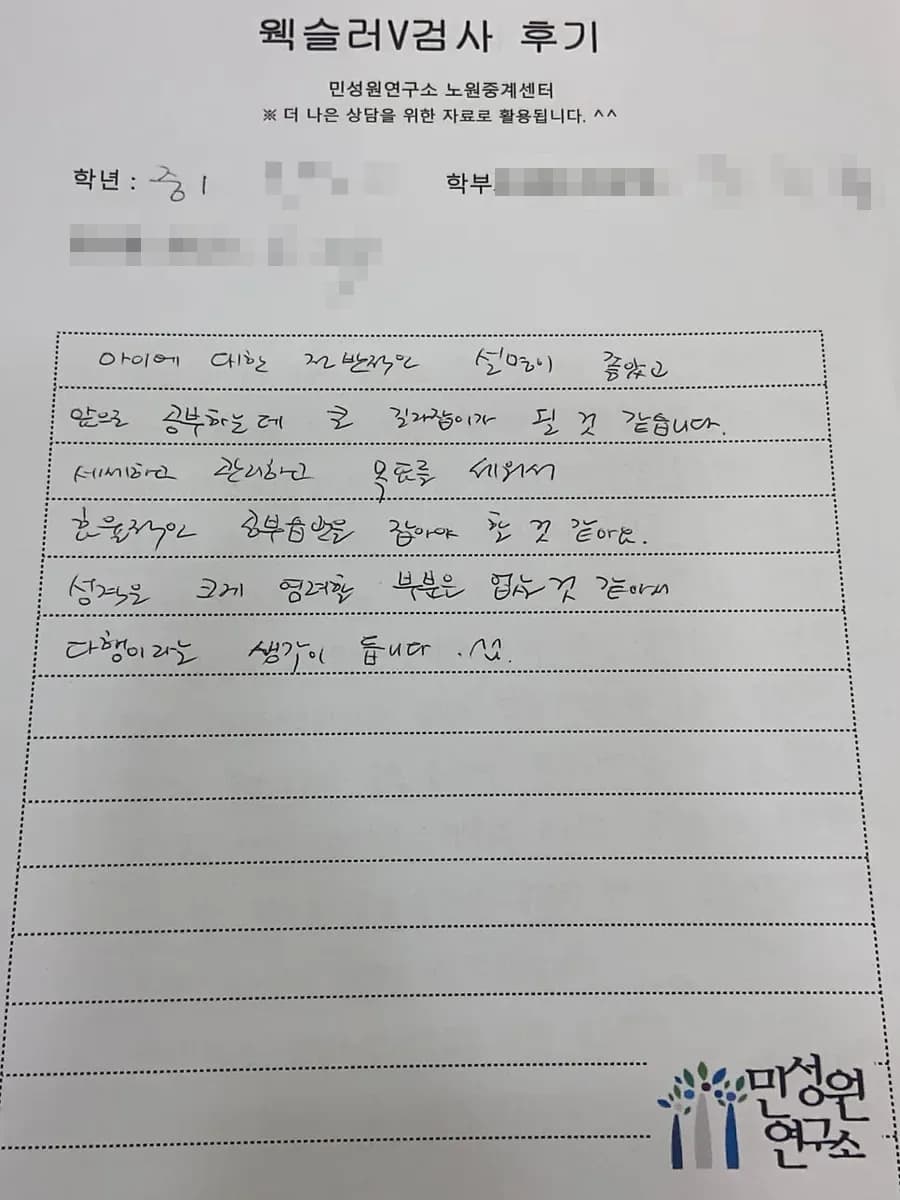 웩슬러V검사 후기
민성원연구소 노원중계센터
※ 더 나은 상담을 위한 자료로 활용됩니다. ^^
학년 : 중1 학부
아이에 대한 전반적인 설명이 좋았고
앞으로 공부하는데 큰 길라잡이가 될 것 같습니다.
세세하고 관리하고 목표를 세워서
효율적인 공부습관을 잡아야 할 것 같아요.
성격은 크게 염려할 부분은 없는 것 같아서
다행이라는 생각이 듭니다.
민성원
연구소